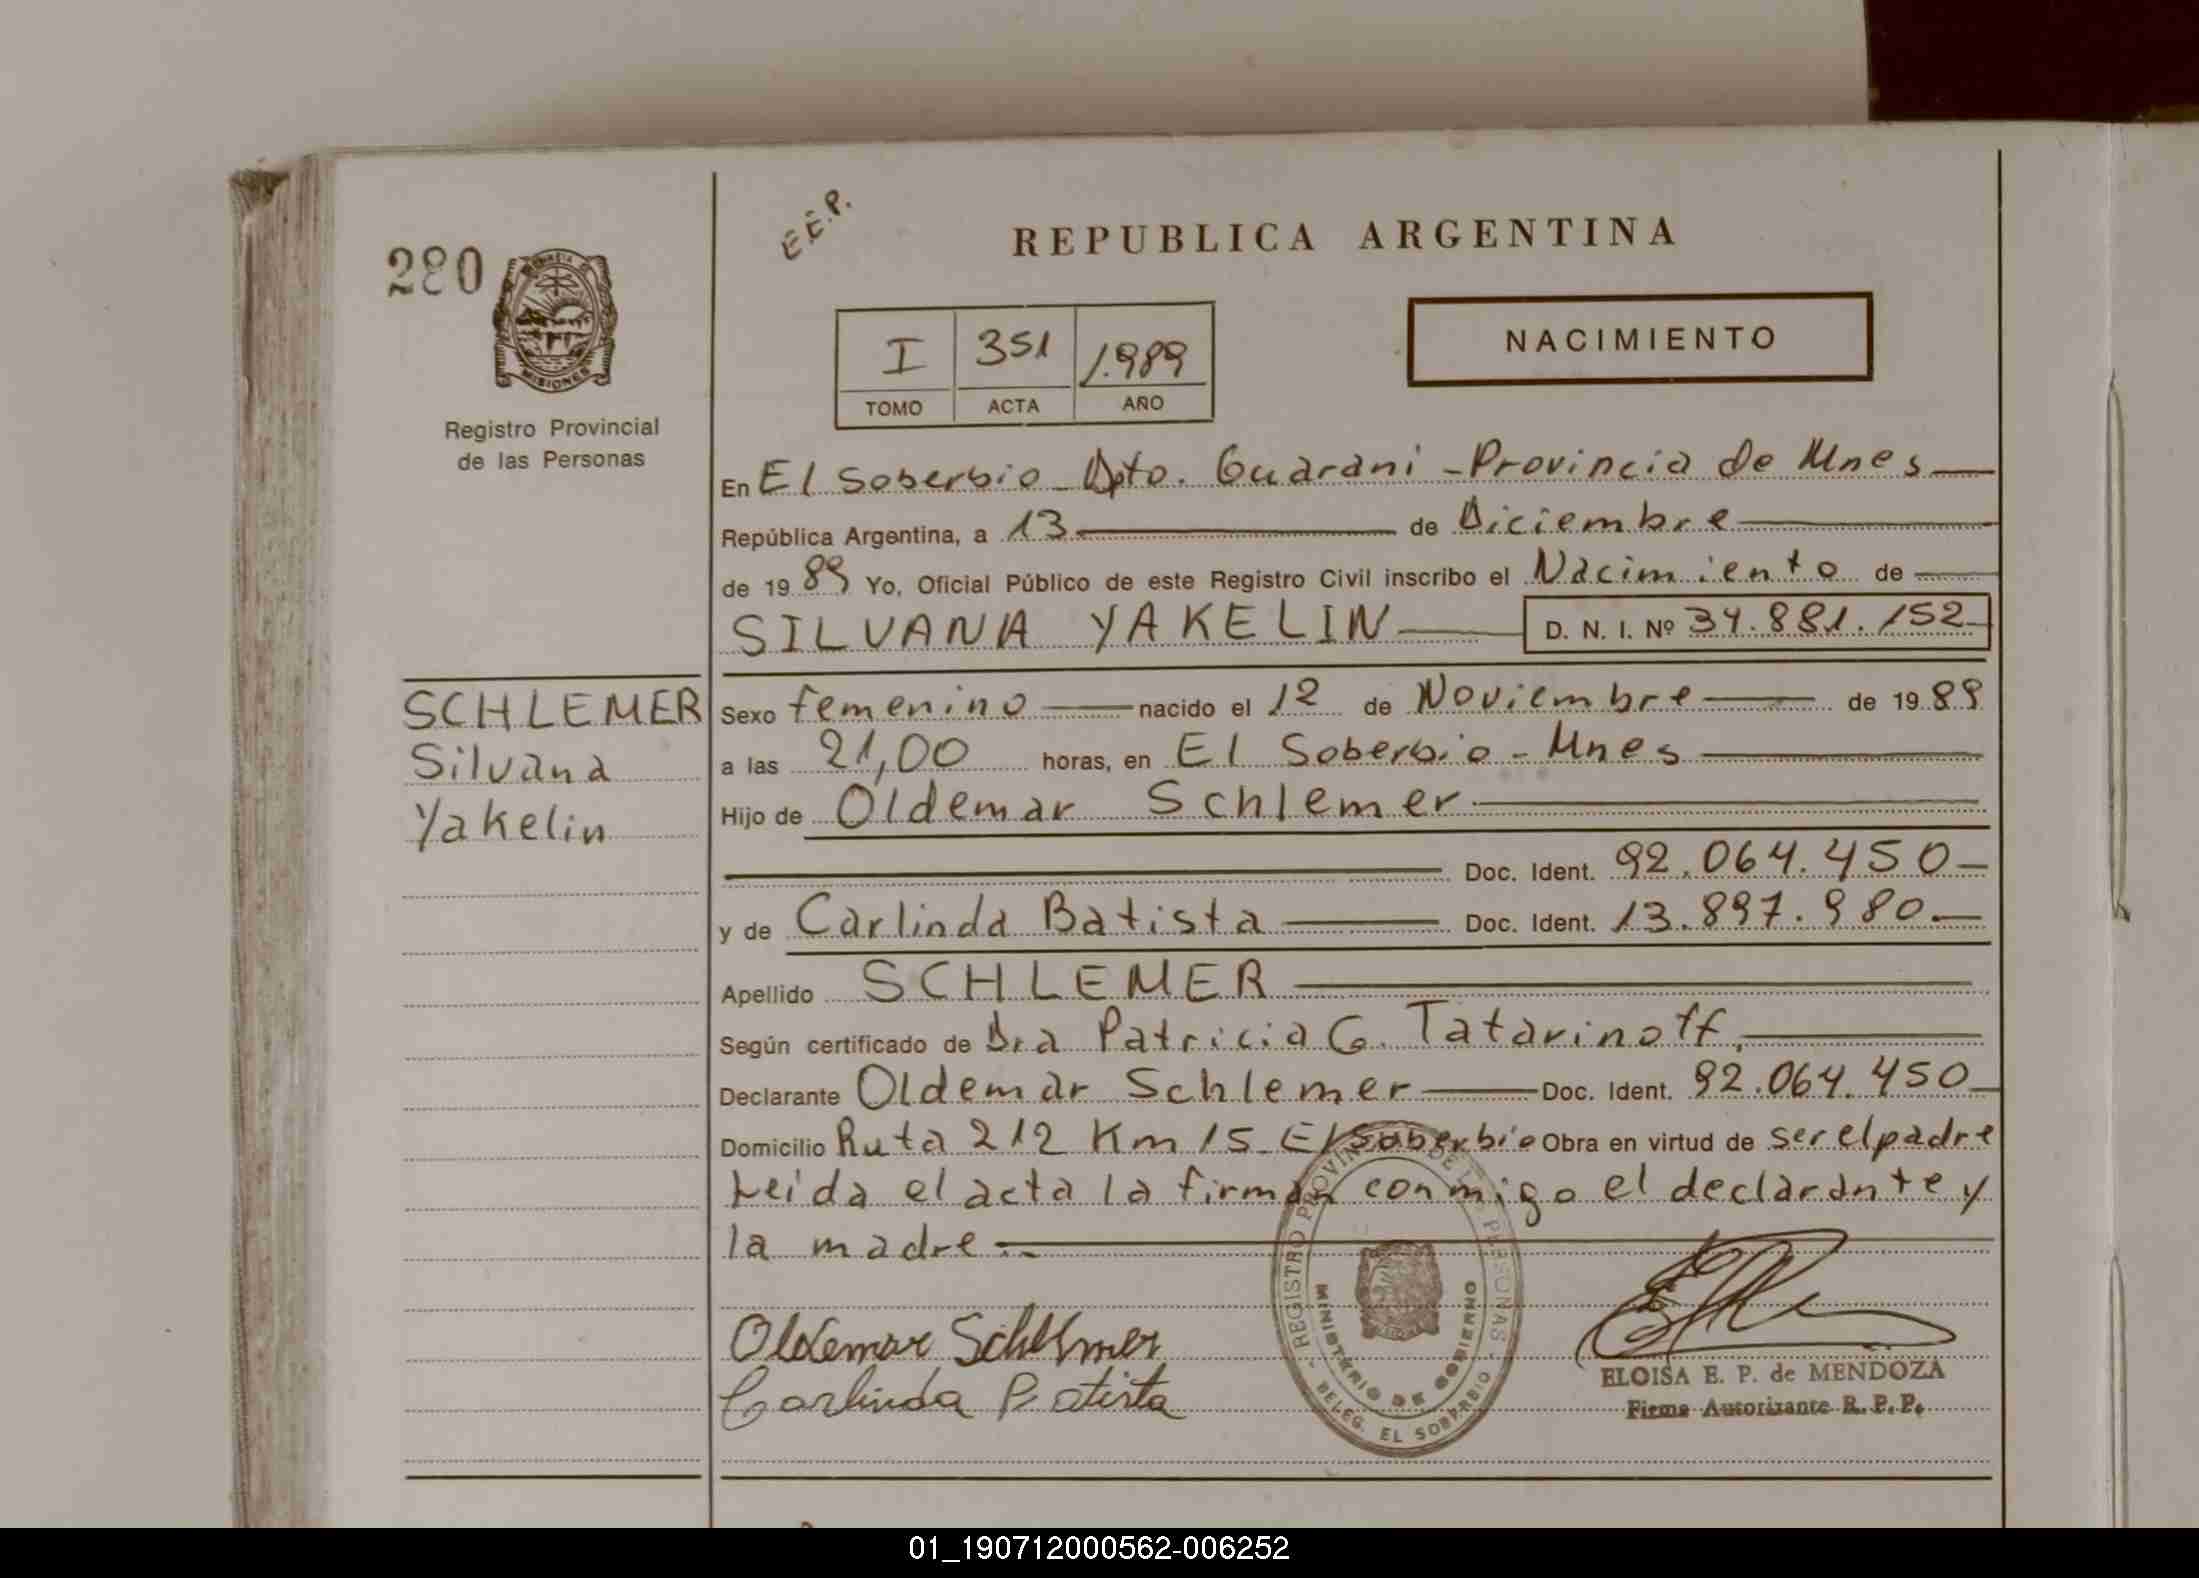 E.E.P.
REPUBLICA ARGENTINA
280
PROVINCIA DE
MISIONES
Registro Provincial
de las Personas
I 351 1.989
TOMO ACTA AÑO
NACIMIENTO
En El Soberbio - Dpto. Guarani - Provincia de Mnes
República Argentina, a 13 de Diciembre
de 19 89 Yo, Oficial Público de este Registro Civil inscribo el Nacimiento de
SILVANA YAKELIN D. N. I. Nº 34.881.152
SCHLEMER
Silvana
Yakelin
Sexo femenino nacido el 12 de Noviembre de 19 89
a las 21,00 horas, en El Soberbio - Mnes
Hijo de Oldemar Schlemer
Doc. Ident. 92.064.450
y de Carlinda Batista Doc. Ident. 13.897.980
Apellido SCHLEMER
Según certificado de Dra Patricia G. Tatarinoff
Declarante Oldemar Schlemer Doc. Ident. 92.064.450
Domicilio Ruta 212 Km 15 El Soberbio Obra en virtud de ser el padre
Leida el acta la firman conmigo el declarante y
la madre
REGISTRO PROVINCIAL DE LAS PERSONAS
MINISTERIO DE GOBIERNO
DELEG. EL SOBERBIO
Oldemar Schlemer
Carlinda Batista
ELOISA E. P. de MENDOZA
Firma Autorizante R. P. P.
01_190712000562-006252